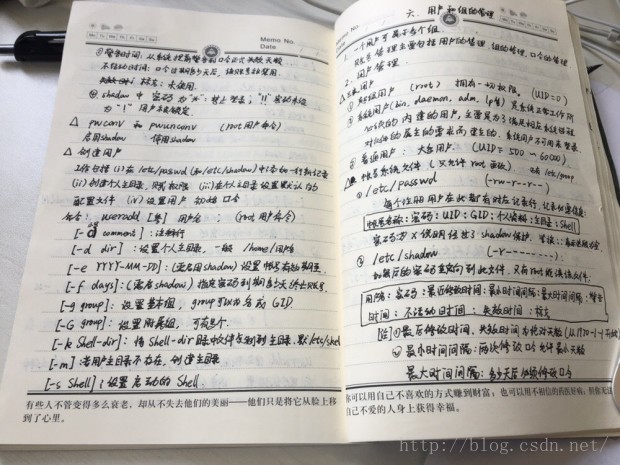 Memo No.
Date
③警告时间：从系统提前警告到口令正式失效天数
不活动时间：口令过期多少天后，该账号被禁用
标志：未使用
④ shadow 中 密码 为"*"：禁止登录，"!!"
为"!" 用户被锁定
△ pwconv 和 pwunconv (root用户命令)
启用shadow 停用shadow
△ 创建用户
工作包括 (i)在/etc/passwd(和/etc/shadow)中添加一行新记录
(ii)创建个人主目录，赋权限 (iii)在个人主目录设置默认的
配置文件 (iv)设置用户初始口令
命令：useradd [ ] 用户名 (root用户命令)
[-c comment]：注释行
[-d dir]：设置个人主目录，一般 /home/用户名
[-e YYYY-MM-DD]：(要启用shadow) 设置帐号有效期至
[-f days]：(需启shadow) 指定密码到期多少天
[-g group]：设置基本组，group可以为名或GID
[-G group]：设置附属组，可有多个
[-k Shell-dir]：将Shell-dir目录软件复制到主目录，默/etc/skel
[-m]：若用户主目录不存在，创建主目录
[-s Shell]：设置启动的Shell.
有些人不管变得多么衰老，却从不失去他们的美丽——他们只是将它从脸上移
到了心里。
Memo No.
Date
六、用户和组的管理
1. 一个用户可属于多个组
账号管理主要包括用户的管理、组的管理、口令的管理
2. 用户管理
① 超级用户 (root) 拥有一切权限。(UID=0)
② 系统用户 (bin, daemon, adm, lp等) 是系统正常工作所
内建的用户，主要是为了满足相应系统进程
对文件属主的要求而建立的，系统用户不可用来登录
③ 普通用户：大多用户 (UID = 500 ~ 60000).
帐号系统文件 (文件root更改) 还有 /etc/group
① /etc/passwd (-rw-r--r--)
每个注册用户在此都有对应记录行，记录如下信息：
帐号名称：密码：UID：GID：个人资料：主目录：Shell
密码为x 说明经过了shadow保护
② /etc/shadow (-r--------)
加解后的密码重定向到此文件，只有root能读该文件
用户名：密码：最近修改时间：最小时间间隔：最大时间间隔：警告
时间：不活动时间：失效时间：标志
[注] ①最后修改时间，失效时间 为绝对天数 (从1970-1-1开始)
②最小时间间隔：两次修改口令允许最小天数
最大时间间隔：多少天后必须修改口令
你可以用自己不喜欢的方式赚到财富；也可以用不相信的药医好病；但你无法
自己不爱的人身上获得幸福。
http://blog.csdn.net/